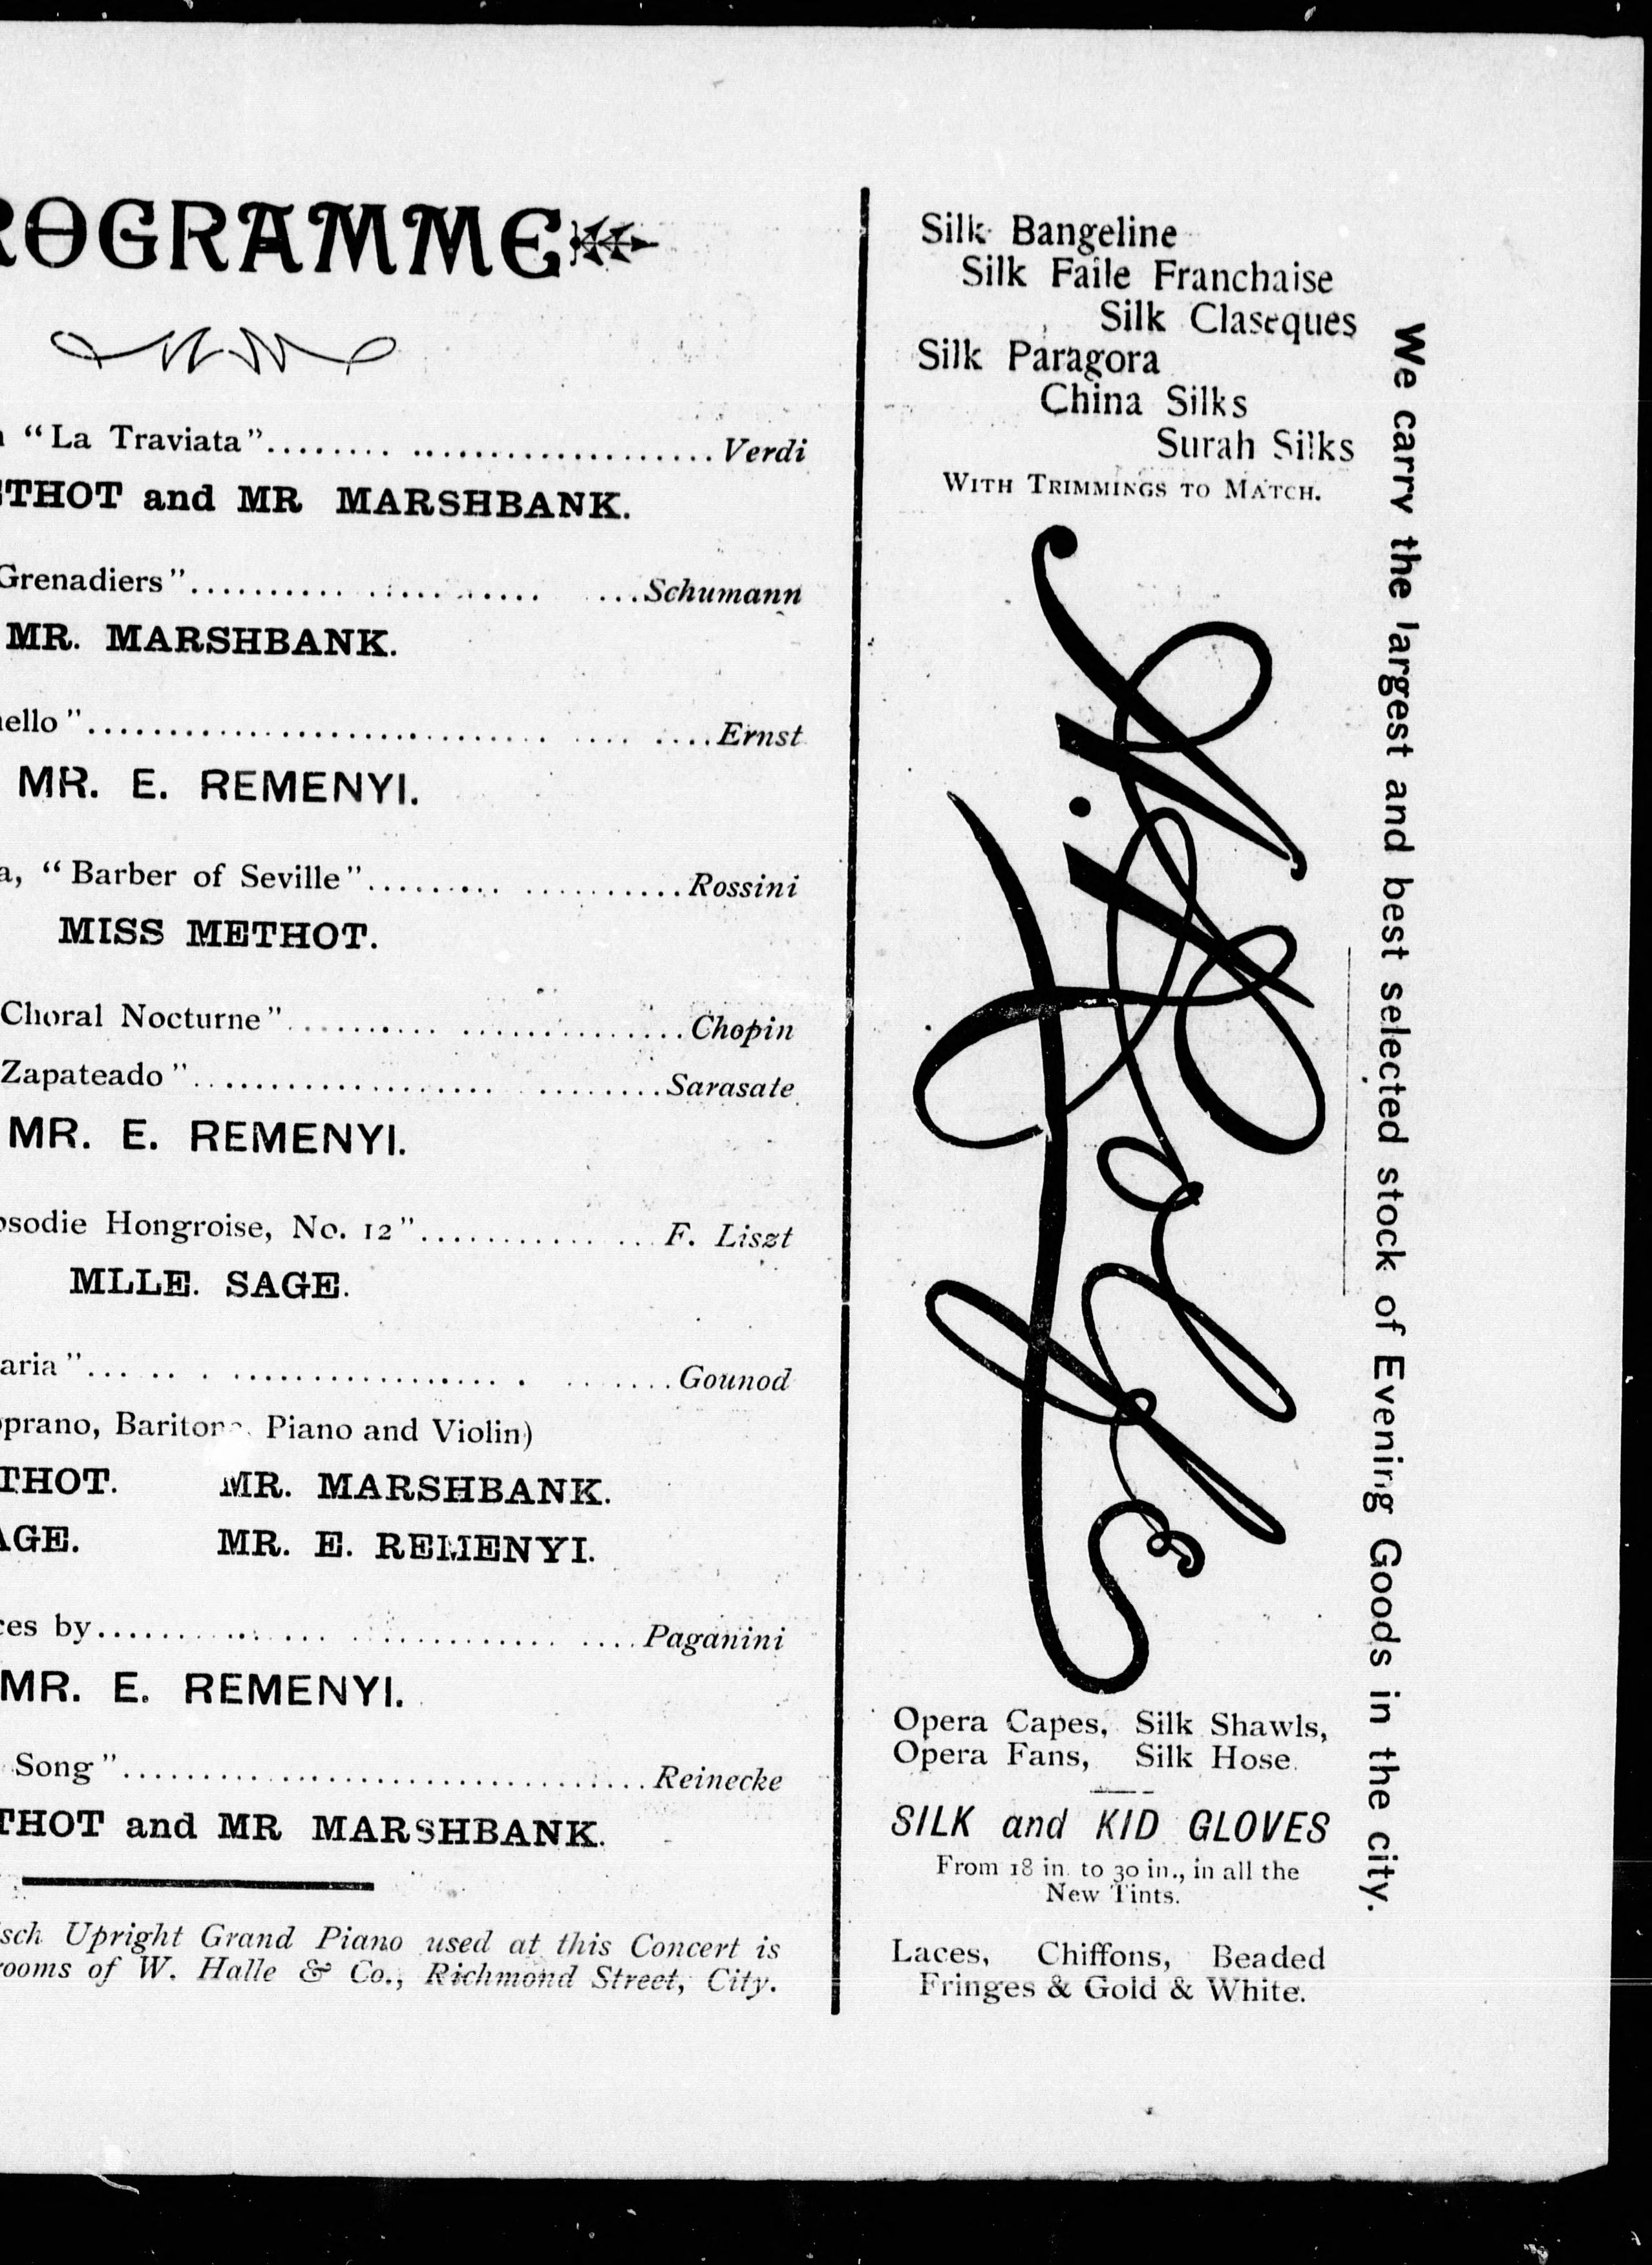 ROGRAMME
"La Traviata" Verdi
THOT and MR MARSHBANK.
Grenadiers" Schumann
MR. MARSHBANK.
ello" Ernst
MR. E. REMENYI.
a, "Barber of Seville" Rossini
MISS METHOT.
Choral Nocturne" Chopin
Zapateado" Sarasate
MR. E. REMENYI.
sodie Hongroise, No. 12" F. Liszt
MLLE. SAGE.
aria" Gounod
prano, Baritone, Piano and Violin)
THOT. MR. MARSHBANK.
AGE. MR. E. REMENYI.
ces by Paganini
MR. E. REMENYI.
Song" Reinecke
THOT and MR MARSHBANK.
sch Upright Grand Piano used at this Concert is
rooms of W. Halle & Co., Richmond Street, City.
Silk Bangeline
Silk Faile Franchaise
Silk Claseques
Silk Paragora
China Silks
Surah Silks
WITH TRIMMINGS TO MATCH.
Opera Capes, Silk Shawls,
Opera Fans, Silk Hose.
SILK and KID GLOVES
From 18 in. to 30 in., in all the
New Tints.
Laces, Chiffons, Beaded
Fringes & Gold & White.
We carry the largest and best selected stock of Evening Goods in the city.